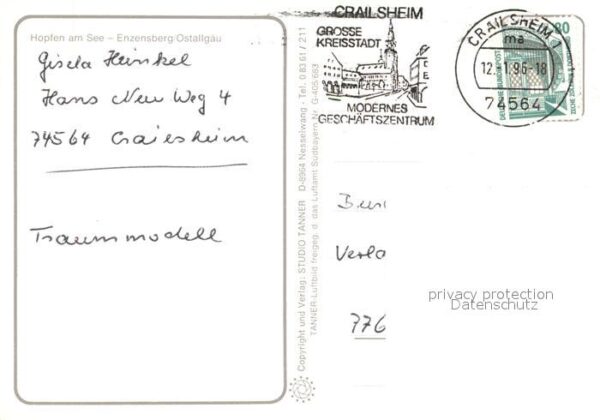 Hopfen am See – Enzensberg/Ostallgäu
Gisela Heinkel
Hans Neu Weg 4
74564 Crailsheim
Traummodell
Copyright und Verlag: STUDIO TANNER D-8964 Nesselwang - Tel. 0 83 61 / 211
TANNER-Luftbild freigeg. d. das Luftamt Südbayern Nr. G-405/693
CRAILSHEIM
GROSSE
KREISSTADT
MODERNES
GESCHÄFTSZENTRUM
CRAILSHEIM 1
ma
12.-1.96-18
74564
80
DEUTSCHE BUNDESPOST
Verla
776
privacy protection
Datenschutz